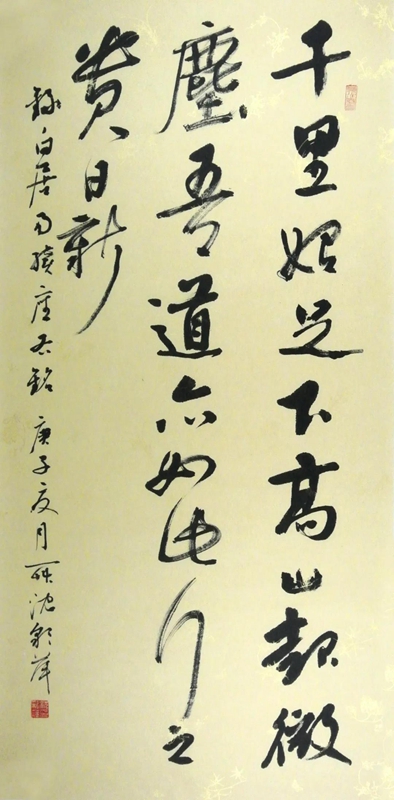 千里始足下高山起微
塵吾道亦如此行之
貴日新
錄白居易續座右銘 庚子夏月 沈